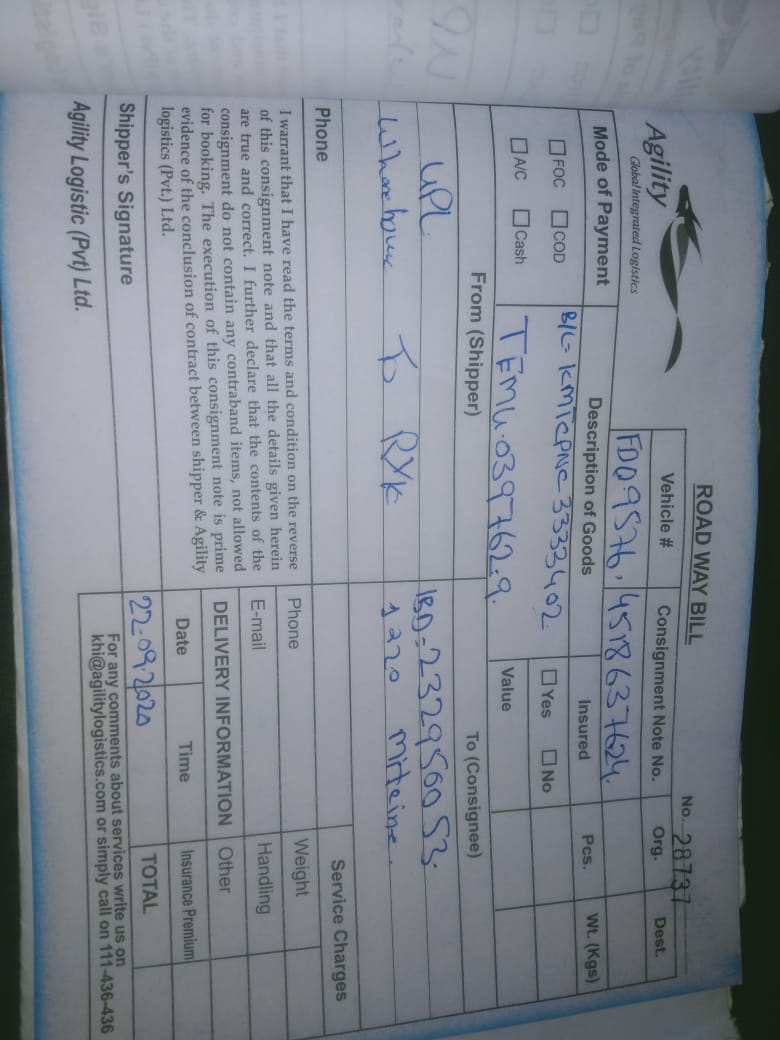 ROAD WAY BILL
No. 28737
Agility
Global Integrated Logistics
Vehicle #
Consignment Note No.
Org.
Dest.
FDQ.9576.
4518637624.
Mode of Payment
Description of Goods
Insured
Pcs.
Wt. (Kgs)
FOC
COD
B/L- KMTCPNC 3333402
Yes
No
A/C
Cash
TEMU.039762.9.
Value
From (Shipper)
To (Consignee)
UPL
IBD=232950053.
To RYK
1220
Phone
Service Charges
I warrant that I have read the terms and condition on the reverse
of this consignment note and that all the details given herein
are true and correct. I further declare that the contents of the
consignment do not contain any contraband items, not allowed
for booking. The execution of this consignment note is prime
evidence of the conclusion of contract between shipper & Agility
logistics (Pvt.) Ltd.
Phone
Weight
E-mail
Handling
DELIVERY INFORMATION
Other
Date
Time
Insurance Premium
22.09.2020
TOTAL
Shipper's Signature
For any comments about services write us on
khi@agilitylogistics.com or simply call on 111-436-436
Agility Logistic (Pvt) Ltd.